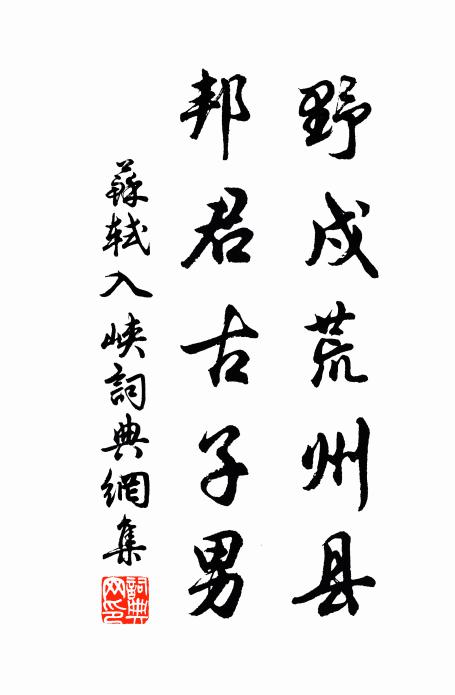 野戍荒州县
邦君古子男
蘇軾入峽詞典網集
詞典网印